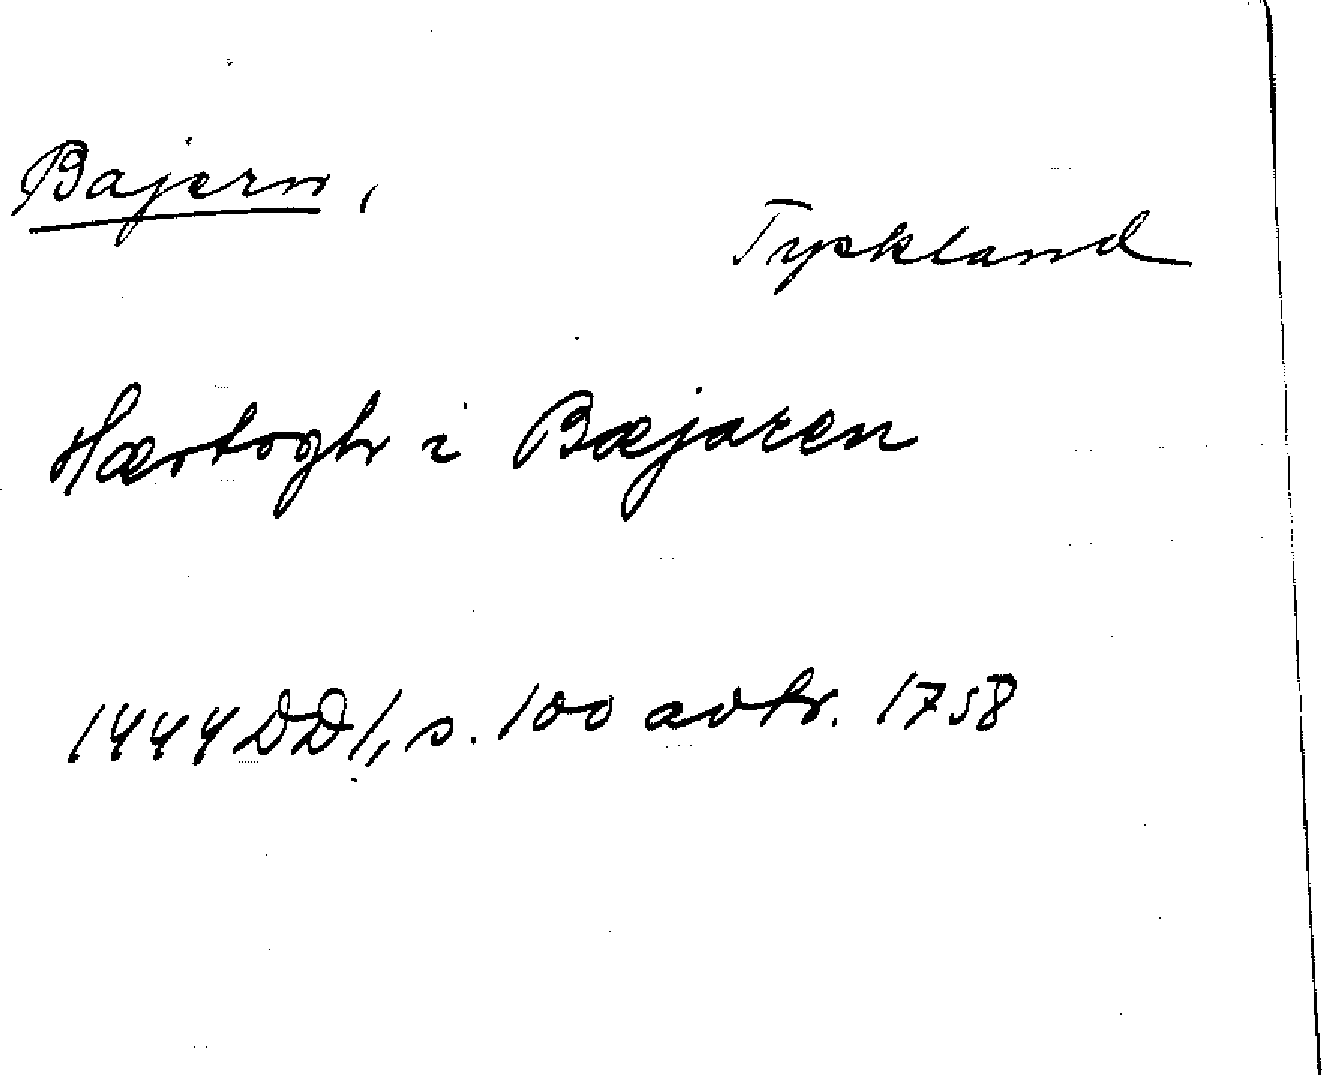 Bajern,
Tyskland
Hærtogh i Bæjaren
1444 DD 1, s. 100 avkr. 1758